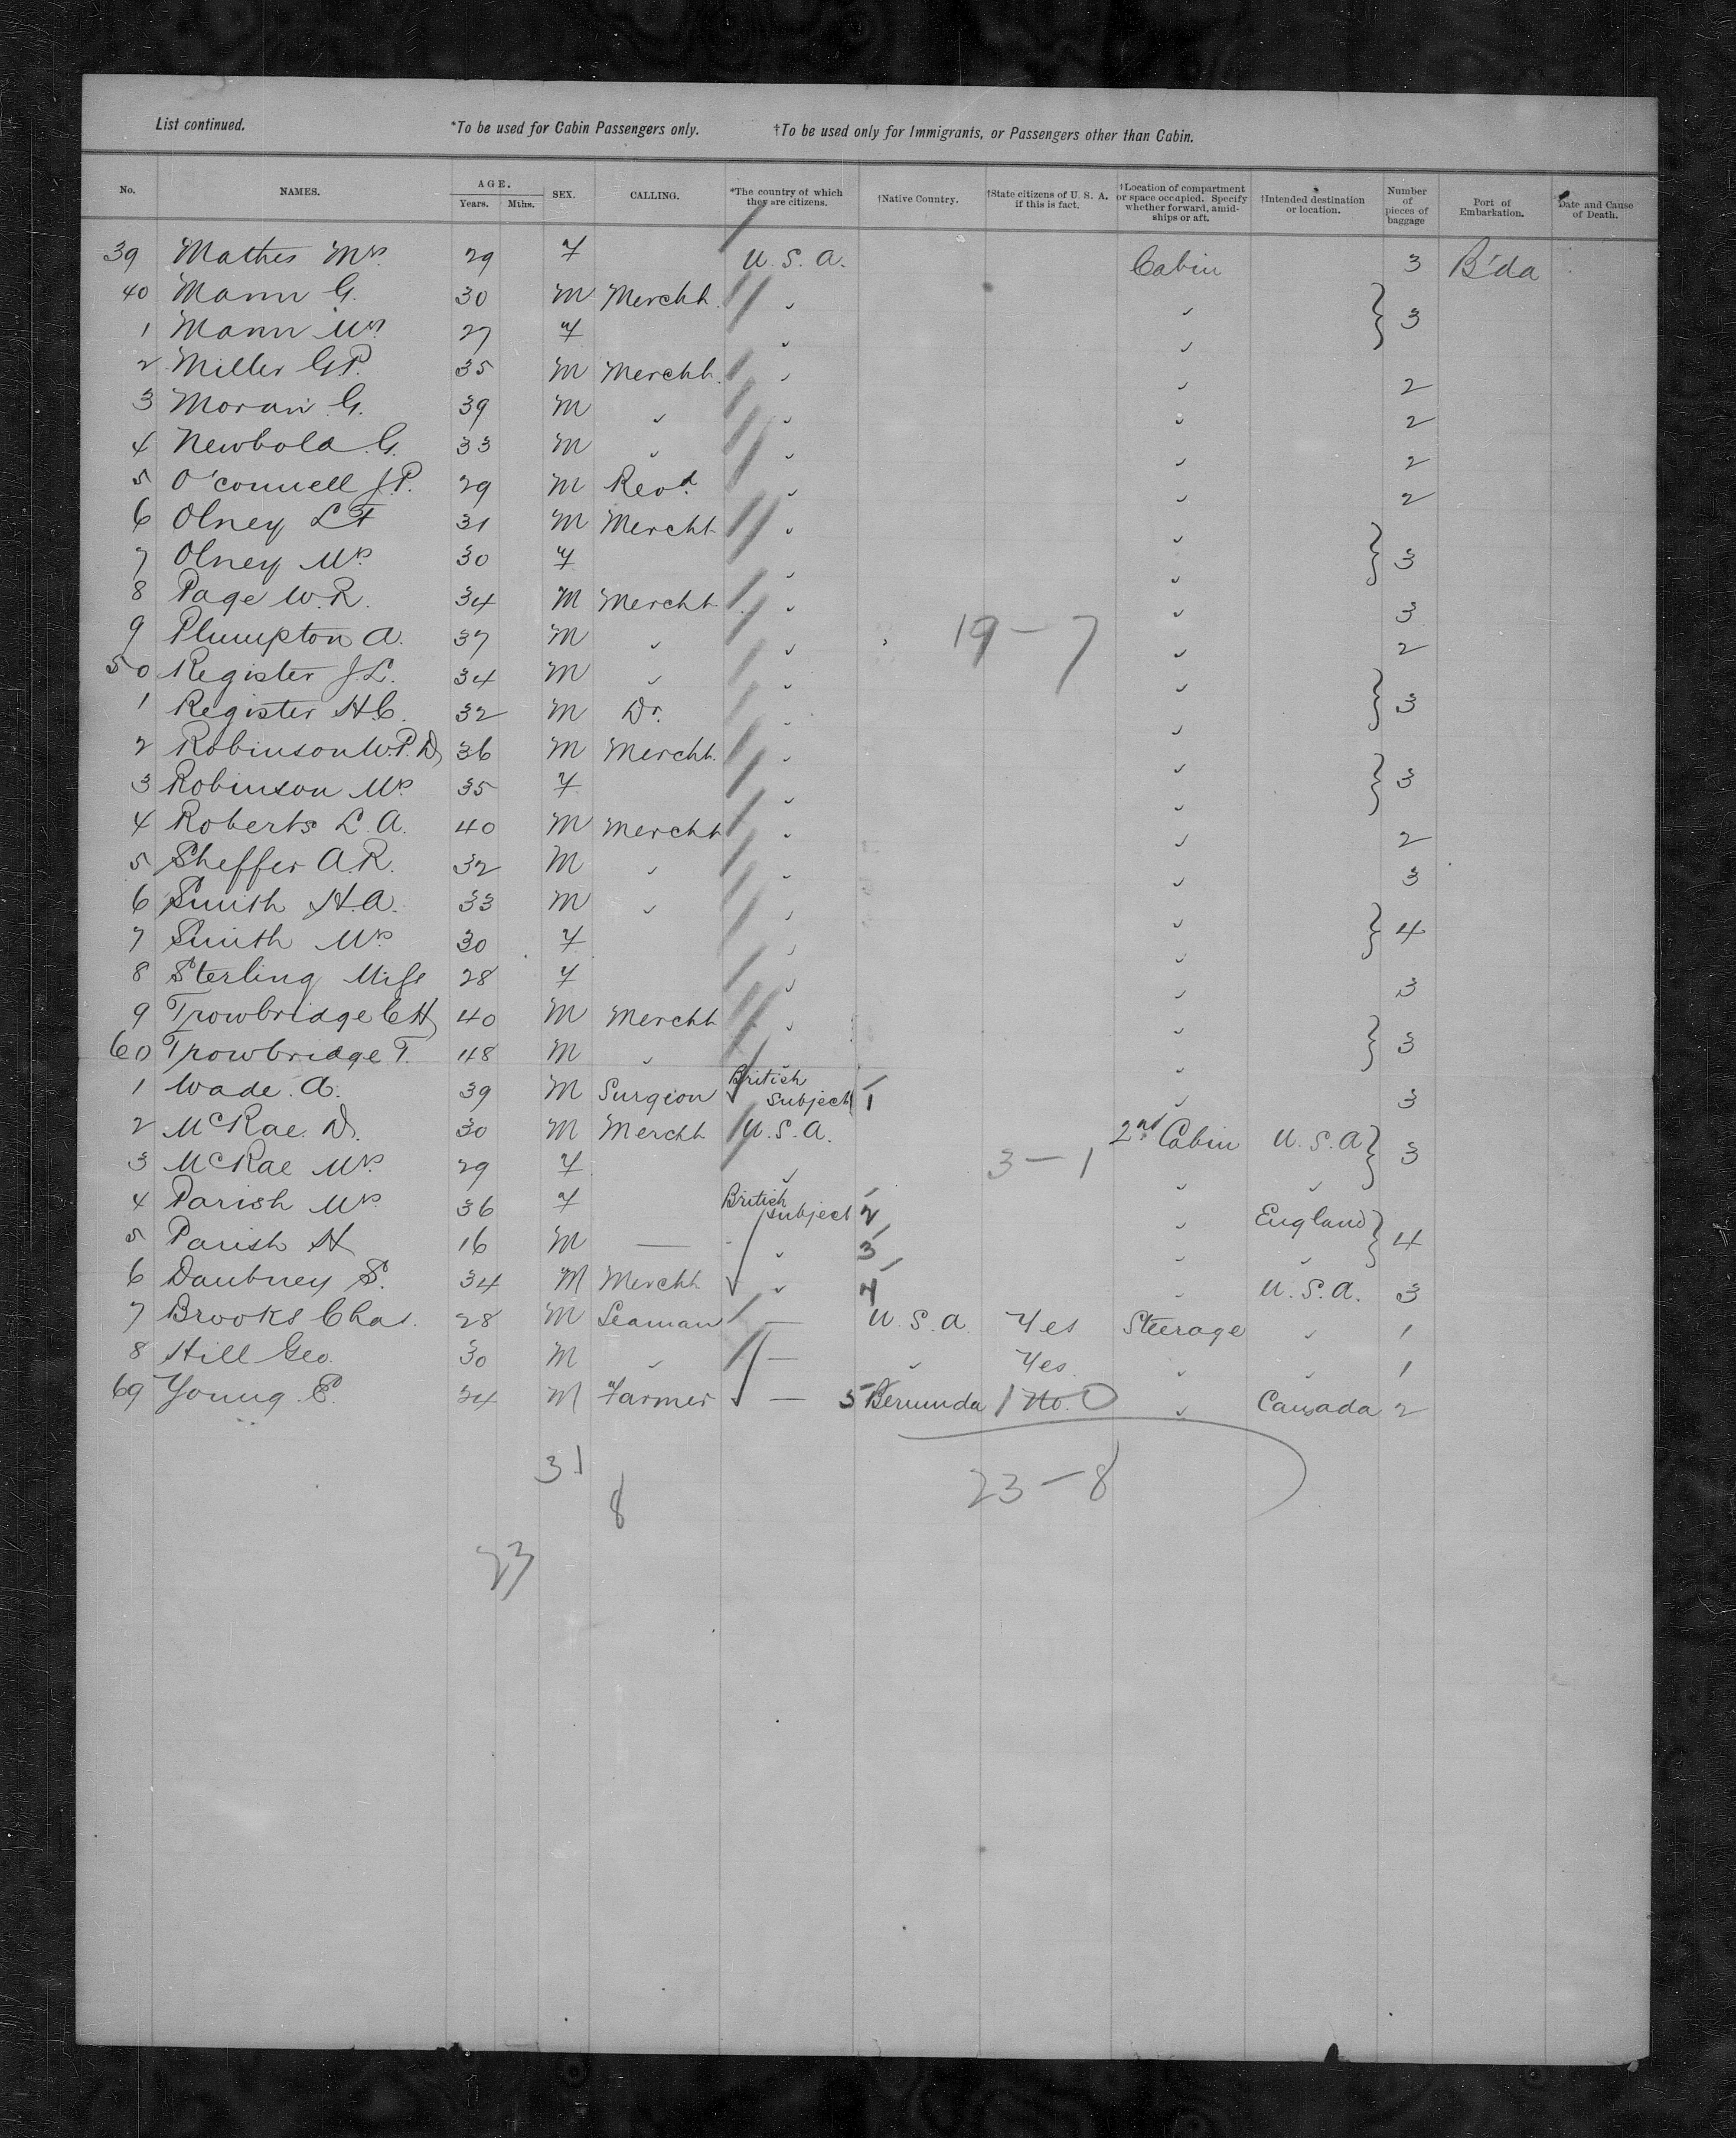 List continued. *To be used for Cabin Passengers only. †To be used only for Immigrants, or Passengers other than Cabin.
No. NAMES. AGE. Years. Mths. SEX. CALLING. *The country of which they are citizens. †Native Country. †State citizens of U. S. A. if this is fact. †Location of compartment or space occupied. Specify whether forward, amidships or aft. †Intended destination or location. Number of pieces of baggage Port of Embarkation. Date and Cause of Death.
39 Mathes Mrs. 29 F U. S. A. Cabin 3 B'da
40 Mann G. 30 M Mercht. " " } 3
1 Mann Mrs 27 F " "
2 Miller G.P. 35 M Mercht. " " 2
3 Moran G. 39 M " " " 2
4 Newbold G. 33 M " " " 2
5 O'connell J.P. 29 M Revd. " " 2
6 Olney L F 31 M Mercht " " } 3
7 Olney Mrs 30 F " "
8 Page W.R. 34 M Mercht " " 3
9 Plumpton A. 37 M " " 19 - 7 " 2
50 Register J.L. 34 M " " " } 3
1 Register H.C. 32 M Dr. " "
2 Robinson W.P.D. 36 M Mercht. " " } 3
3 Robinson Mrs 35 F " "
4 Roberts L. A. 40 M Mercht " " 2
5 Sheffer A.R. 32 M " " " 3
6 Smith H.A. 33 M " " " } 4
7 Smith Mrs 30 F " "
8 Sterling Miss 28 F " " 3
9 Trowbridge C H 40 M Mercht " " } 3
60 Trowbridge T. 48 M " " "
1 Wade A. 39 M Surgion British Subject 1 " 3
2 McRae D. 30 M Mercht U. S. A. 2nd Cabin U. S. A } 3
3 McRae Mrs 29 F " 3 - 1 " "
4 Parish Mrs 36 F British subject 2 " England } 4
5 Parish H 16 M — " 3 " "
6 Daubney S. 34 M Mercht " 4 " U. S. A. 3
7 Brooks Chas. 28 M Seaman — U. S. A Yes Steerage " 1
8 Hill Geo. 30 M " — " Yes. " " 1
69 Young E. 24 M Farmer — 5 Bermuda 1 No. 0 " Canada 2
31
8
23 - 8
23